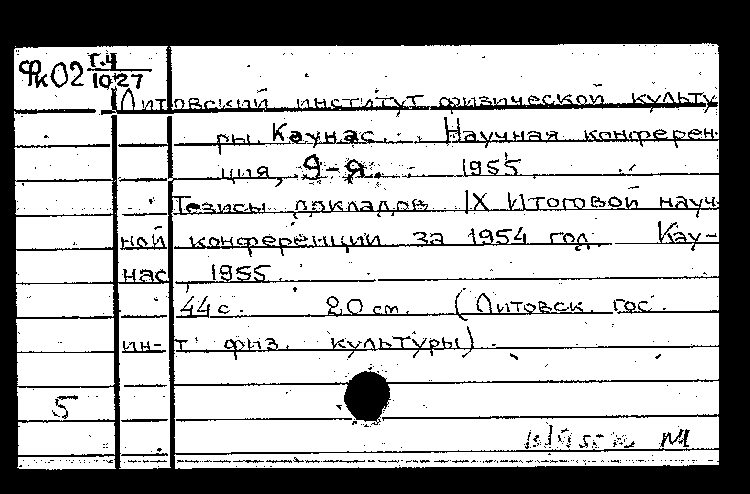 Фк02 Г.4
10.27
Литовский институт физической культу
ры. Каунас. Научная конферен
ция, 9-я. 1955.
Тезисы докладов IX Итоговой науч
ной конференции за 1954 год. Кау-
нас, 1955.
44 с. 20 см. (Литовск. гос.
ин-т физ. культуры).
5